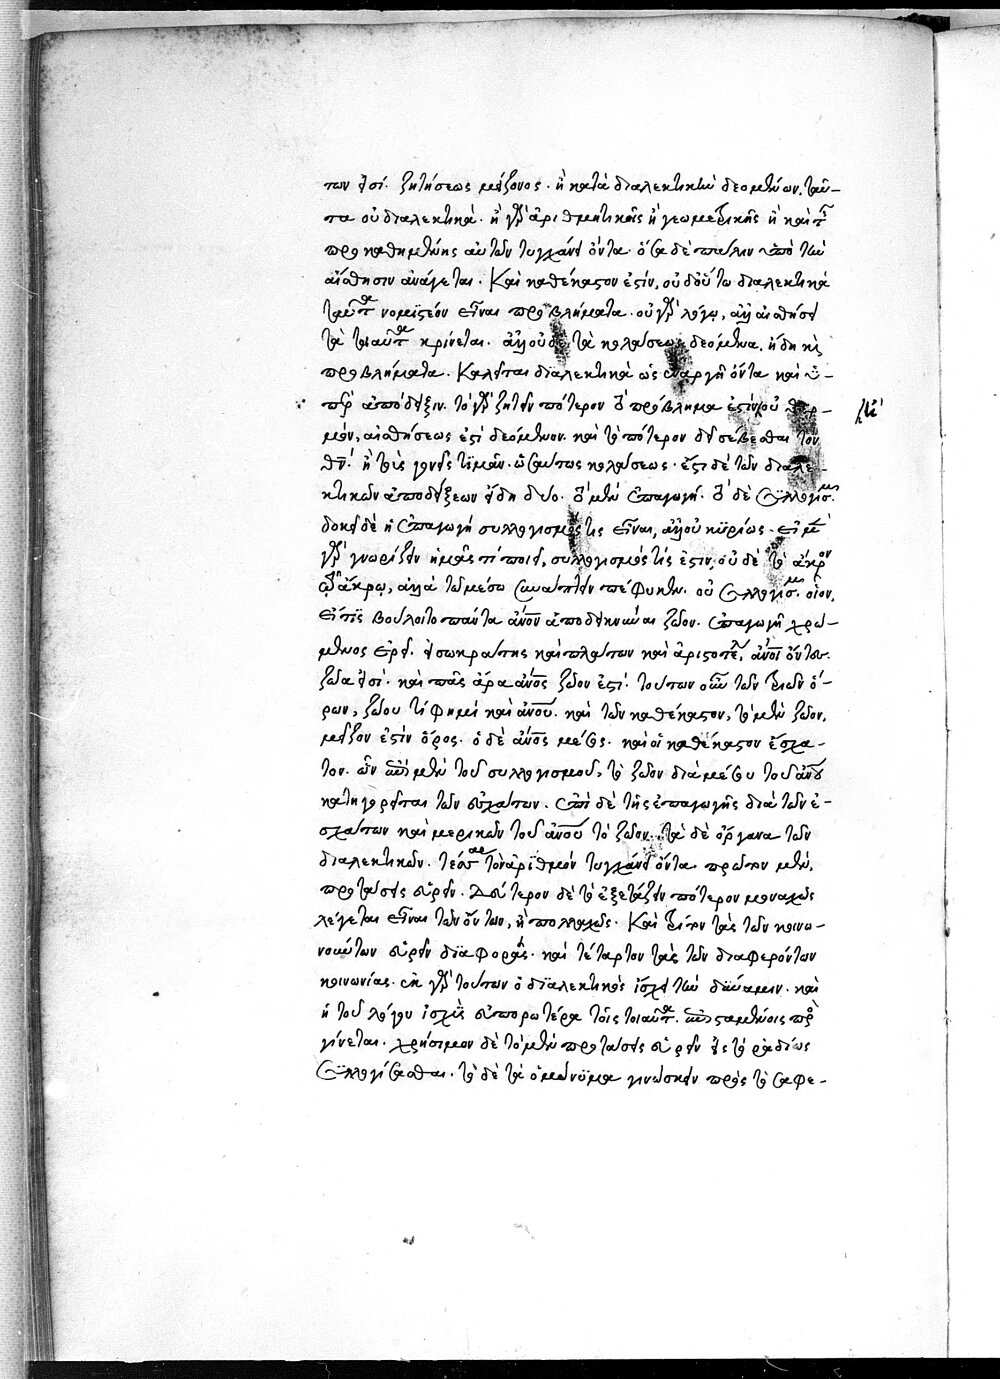 των εἰσὶ ζητήσεως μείζονος· ἢ κατὰ διαλεκτικὴν δεομένων, ταῦ-
τα οὐ διαλεκτικά· ἢ γὰρ ἀριθμητικῆς ἢ γεωμετρικῆς ἢ καὶ τ
προκαθημένης αὐτῶν τυγχάνει ὄντα· ὅσα δὲ πάλιν ὑπὸ τὴν
αἴσθησιν ἀνάγεται. Καὶ καθέκαστον ἐστίν, οὐδ' οὕτω διαλεκτικὰ
ταῦτα νομιστέον εἶναι προβλήματα· οὐ γὰρ λόγῳ, ἀλλ' αἰσθήσει
τὰ τοιαῦτα κρίνεται. ἀλλ' οὐδὲ τὰ κολάσεως δεόμενα, ἤδη καὶ
προβλήματα. Καλεῖται διαλεκτικὰ ὡς ἐναργῆ ὄντα καὶ ὑ-
πὲρ ἀπόδειξιν. τὸ γὰρ ζητεῖν πότερον πρόβλημα ἐστὶν οὐ θερ-
μόν, αἰσθήσεως ἐστὶ δεόμενον. καὶ τὸ πότερον δεῖ σέβεσθαι τὸν
θν· ἢ τοὺς γονεῖς τιμᾶν. ὡσαύτως κολάσεως· ἔστι δὲ τῶν διαλε-
κτικῶν ἀποδείξεων εἴδη δύο. μὲν ἐπαγωγή· δὲ συλλογισμός.
δοκεῖ δὲ ἡ ἐπαγωγὴ συλλογισμός τις εἶναι, ἀλλ' οὐ κυρίως· εἰ μὲν
γὰρ γνωρίζειν ἡμᾶς τί ποιεῖ, συλλογισμός τίς ἐστιν, οὐ δὲ τὸ ἄκρον
ἄκρῳ, ἀλλὰ τῷ μέσῳ συνάπτειν πέφυκεν· οὐ συλλογισμός. οἷον,
εἴ τις βούλοιτο πάντα ἄνον ἀποδεικνύναι ζῶον· ἐπαγωγῇ χρώ-
μενος ἐρεῖ· εἰ σωκράτης καὶ πλάτων καὶ ἀριστοτέλης, ἄνοι ὄντες
ζῶα εἰσί· καὶ πᾶς ἄρα ἄνος ζῶον ἐστί· τούτων οὖν τῶν τριῶν ὅ-
ρων, ζώου τί φημι καὶ ἀνου· καὶ τῶν καθέκαστον, τὸ μὲν ζῶον,
μεῖζον ἐστὶν ὅρος· ὁ δὲ ἄνος μέσος· καὶ οἱ καθέκαστον ἔσχα-
τον. ὧν ἐπὶ μὲν τοῦ συλλογισμοῦ, τὸ ζῶον διὰ μέσου τοῦ ἀνου
κατηγορεῖται τῶν ἐσχάτων. ἐπὶ δὲ τῆς ἐπαγωγῆς διὰ τῶν ἐ-
σχάτων καὶ μερικῶν τοῦ ἀνου τὸ ζῶον. τὰ δὲ ὄργανα τῶν
διαλεκτικῶν, τέσσαρα τὸν ἀριθμὸν τυγχάνει ὄντα πρῶτον μὲν,
προτάσεις εὑρεῖν. Δεύτερον δὲ τὸ ἐξετάζειν πότερον μοναχῶς
λέγεται εἶναι τῶν ὄντων, ἢ πολλαχῶς. Καὶ τρίτον τὰς τῶν κοινω-
νούντων εὑρεῖν διαφοράς· καὶ τέταρτον τὰς τῶν διαφερόντων
κοινωνίας. ἐκ γὰρ τούτων ὁ διαλεκτικὸς ἰσχύει τὴν δύναμιν. καὶ
ἡ τοῦ λόγου ἰσχὺς εὐπορωτέρα τοῖς τοιαύτ
γίνεται. χρήσιμον δὲ τὸ μὲν προτάσεις εὑρεῖν εἰς τὸ ῥαδίως
συλλογίσασθαι. τὸ δὲ τὰ ὁμώνυμα γινώσκειν πρὸς τὸ σαφε-